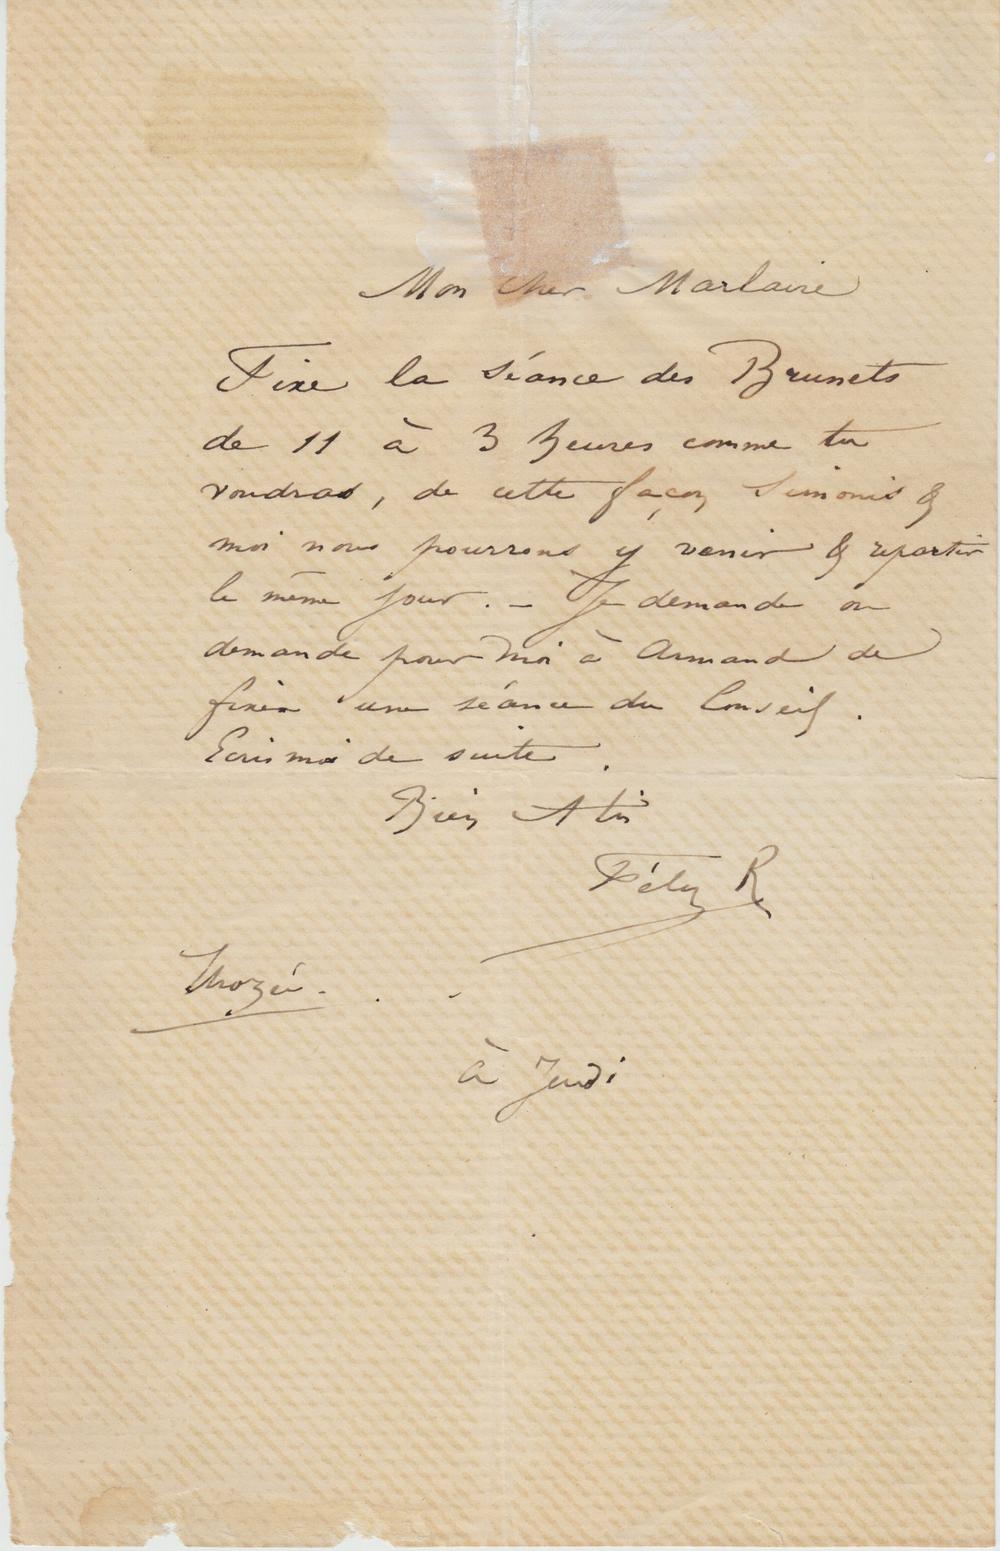 Mon Cher Marlaire
Fixe la séance des Brunets
de 11 à 3 heures comme tu
voudras, de cette façon Simonis &
moi nous pourrons y venir & repartir
le même jour. – Je demande ou
demande pour moi à Armand de
fixer une séance du Conseil.
Ecris moi de suite.
Bien A toi
Fély R
Thozée.
à Jeudi